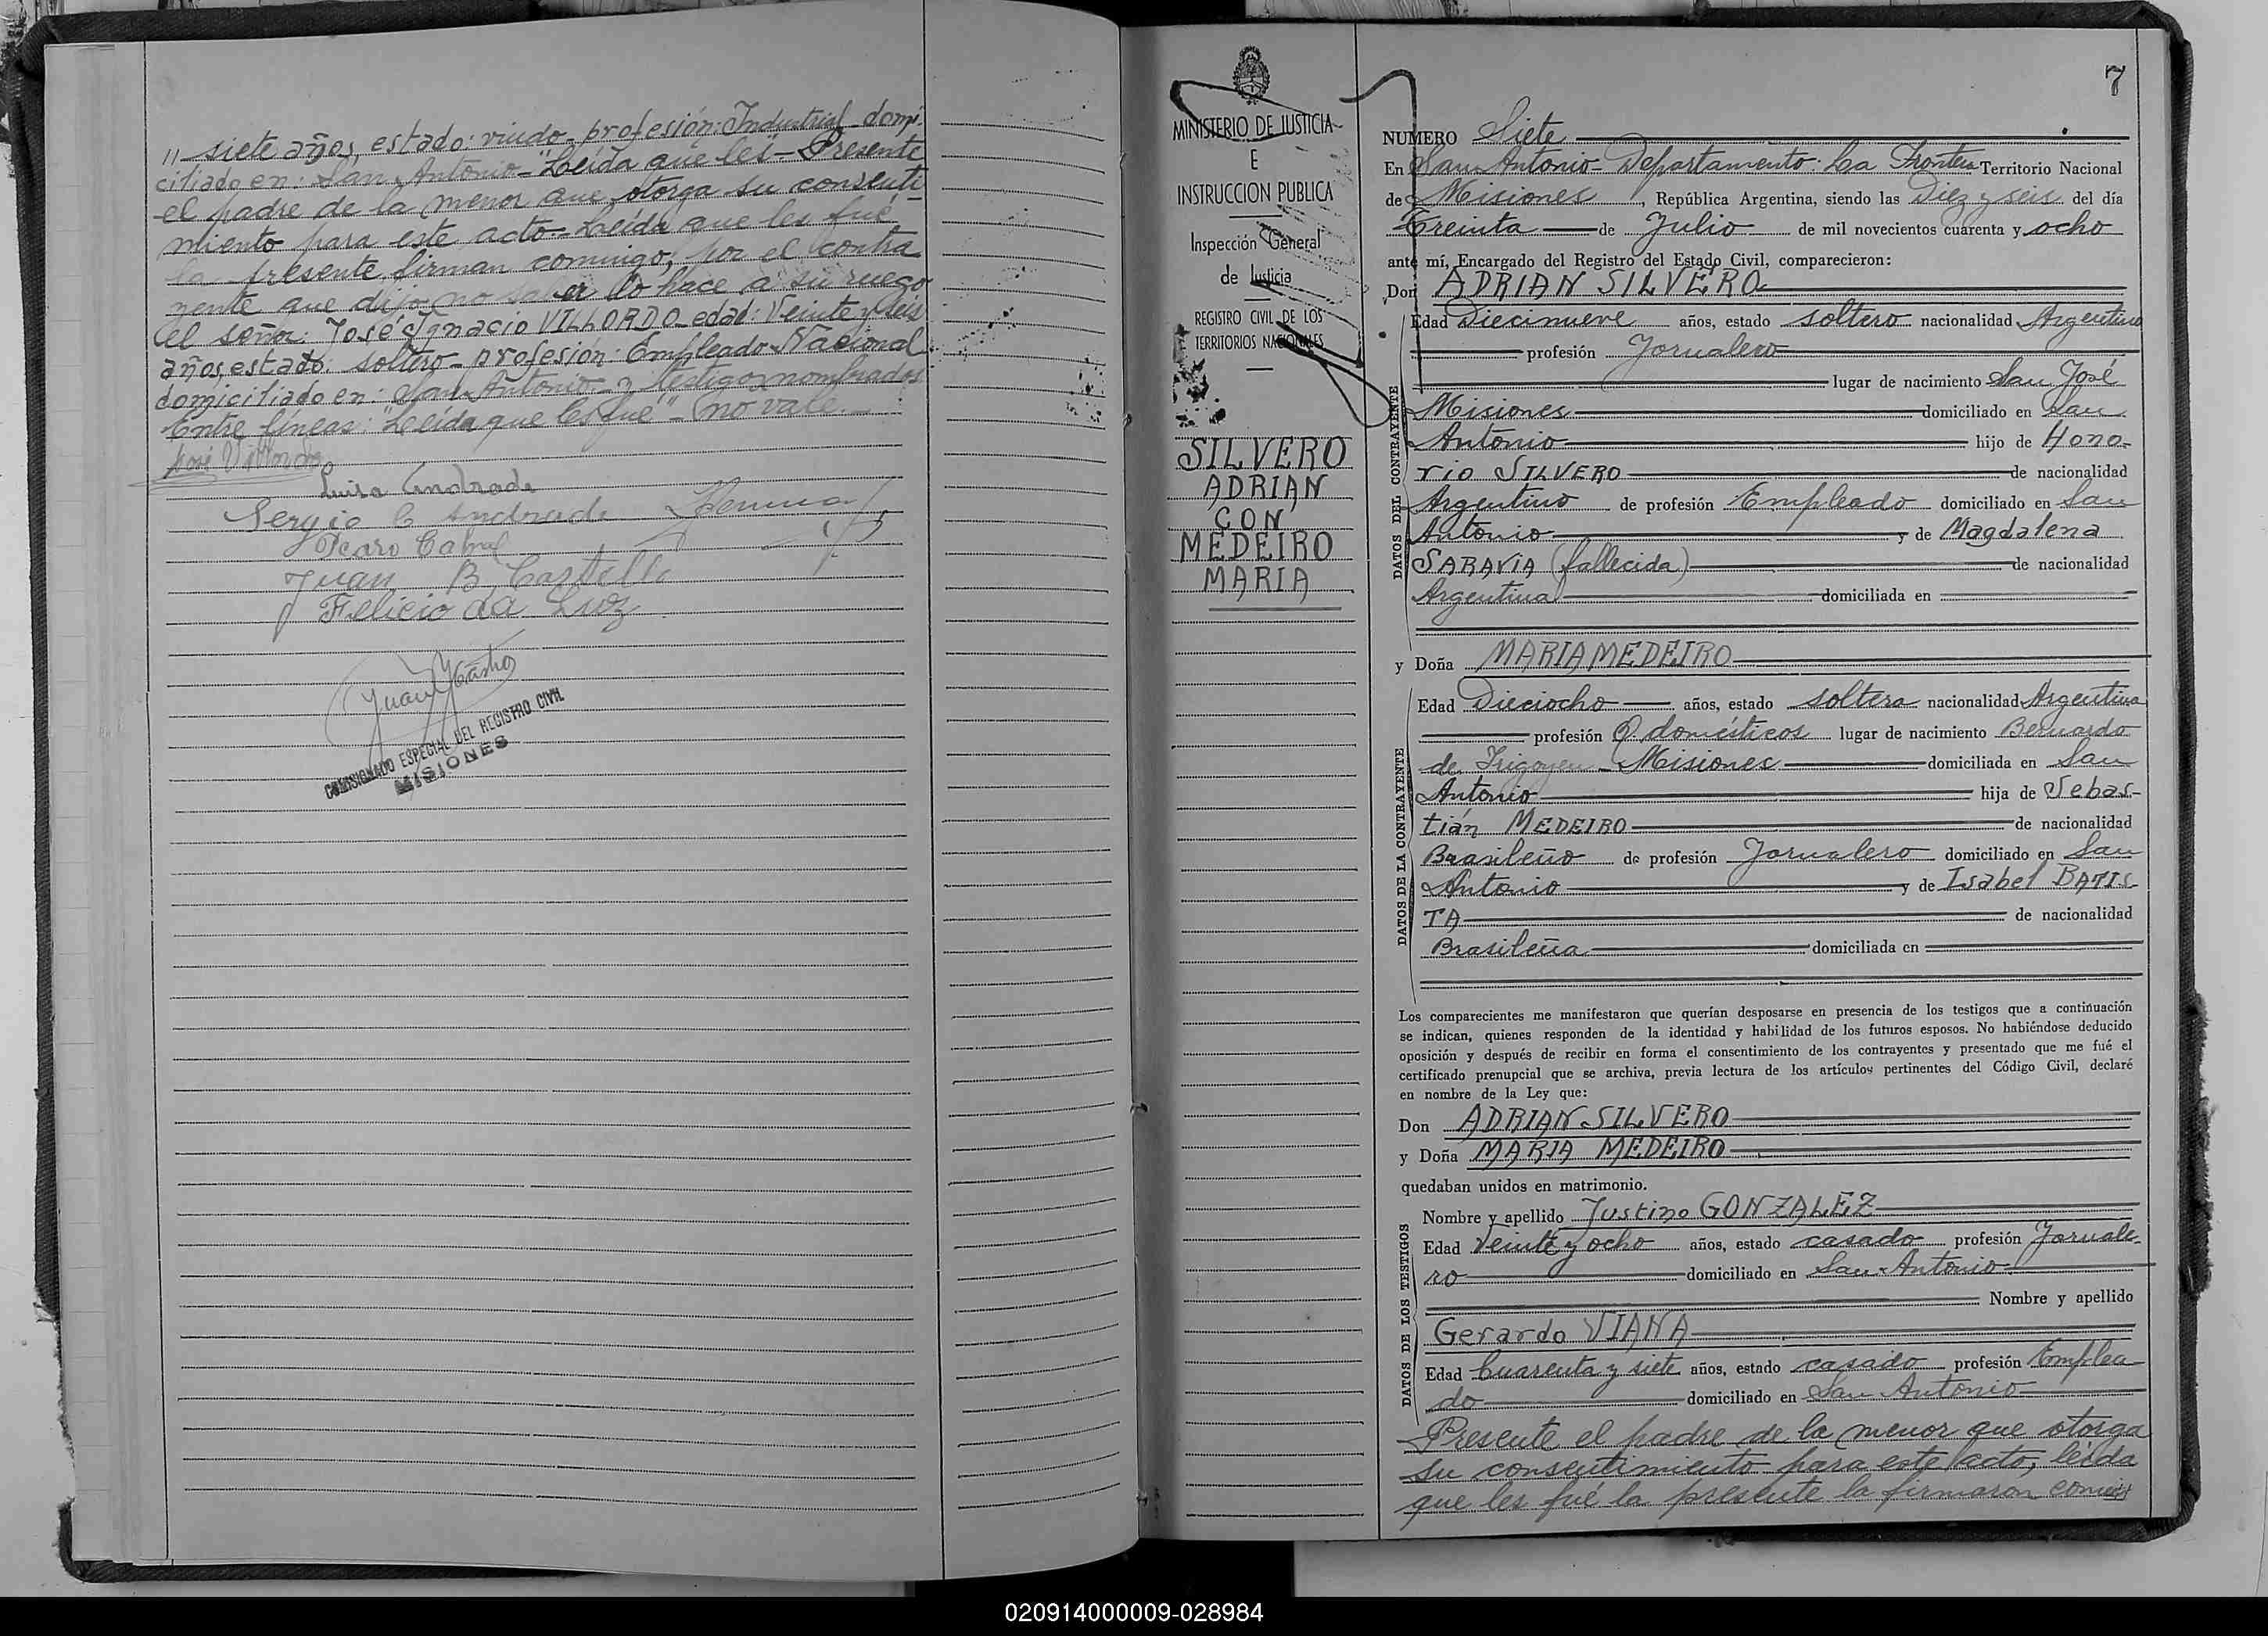 " siete años, estado: viudo - profesión: Industrial - domi-
ciliado en: San Antonio - "Leída que les - Presente
el padre de la menor que otorga su consenti-
miento para este acto - Leída que les fué
la presente firman conmigo, por el contra
yente que dijo no saber lo hace a su ruego
el señor: José Ignacio VILLORDO - edad: Veinte y seis
años, estado: soltero - profesión: Empleado Nacional
domiciliado en: San Antonio - y testigos nombrados
Entre líneas: "Leída que les fué" - no vale.-
José Villordo
Luisa Andrade
Sergio C Andrade
Pedro Cabral
Juan B Castello
Felicio da Luz
Juan
COMISIONADO ESPECIAL DEL REGISTRO CIVIL
MISIONES
MINISTERIO DE JUSTICIA
E
INSTRUCCION PUBLICA
Inspección General
de Justicia
REGISTRO CIVIL DE LOS
TERRITORIOS NACIONALES
SILVERO
ADRIAN
CON
MEDEIRO
MARIA
7
NUMERO Siete
En San Antonio - Departamento: La Frontera Territorio Nacional
de Misiones, República Argentina, siendo las Diez y seis del día
Treinta de Julio de mil novecientos cuarenta y ocho
ante mí, Encargado del Registro del Estado Civil, comparecieron:
Don ADRIAN SILVERO
DATOS DEL CONTRAYENTE
Edad Diecinueve años, estado soltero nacionalidad Argentino
profesión Jornalero
lugar de nacimiento San José
Misiones domiciliado en San
Antonio hijo de Hono-
rio SILVERO de nacionalidad
Argentino de profesión Empleado domiciliado en San
Antonio y de Magdalena
SARAVIA (fallecida) de nacionalidad
Argentina domiciliada en
y Doña MARIA MEDEIRO
DATOS DE LA CONTRAYENTE
Edad Dieciocho años, estado soltera nacionalidad Argentina
profesión Q. domésticos lugar de nacimiento Bernardo
de Irigoyen - Misiones domiciliada en San
Antonio hija de Sebas-
tián MEDEIRO de nacionalidad
Brasileño de profesión Jornalero domiciliado en San
Antonio y de Isabel BATIS-
TA de nacionalidad
Brasileña domiciliada en
Los comparecientes me manifestaron que querían desposarse en presencia de los testigos que a continuación
se indican, quienes responden de la identidad y habilidad de los futuros esposos. No habiéndose deducido
oposición y después de recibir en forma el consentimiento de los contrayentes y presentado que me fué el
certificado prenupcial que se archiva, previa lectura de los artículos pertinentes del Código Civil, declaré
en nombre de la Ley que:
Don ADRIAN SILVERO
y Doña MARIA MEDEIRO
quedaban unidos en matrimonio.
DATOS DE LOS TESTIGOS
Nombre y apellido Justino GONZALEZ
Edad Veinte y ocho años, estado casado profesión Jornale-
ro domiciliado en San Antonio
Nombre y apellido
Gerardo VIANA
Edad Cuarenta y siete años, estado casado profesión Emplea
do domiciliado en San Antonio
Presente el padre de la menor que otorga
su consentimiento para este acto, leída
que les fué la presente la firmaron
020914000009-028984